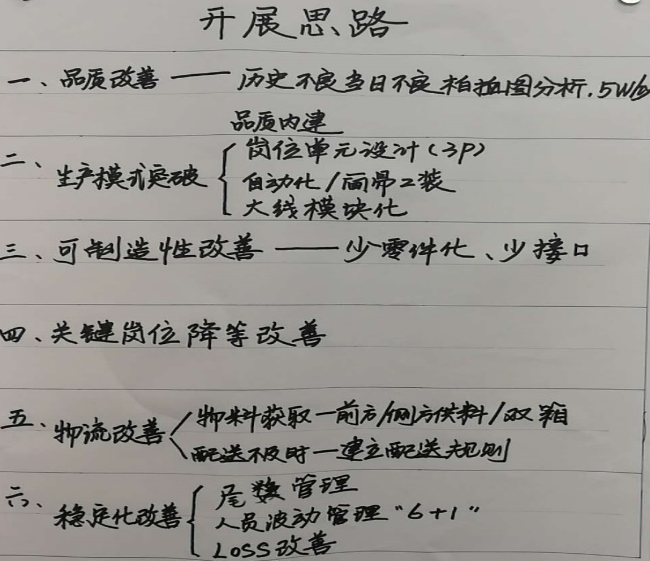 开展思路
一、品质改善 —— 历史不良当日不良柏拉图分析. 5W/
品质内建
二、生产模式突破
岗位单元设计(3P)
自动化/工装
大线模块化
三、可制造性改善 —— 少零件化、少接口
四、关键岗位降等改善
五、物流改善
物料获取—前方/侧方供料/双箱
配送不及时—建立配送规则
六、稳定化改善
尾数管理
人员波动管理"6+1"
LOSS改善